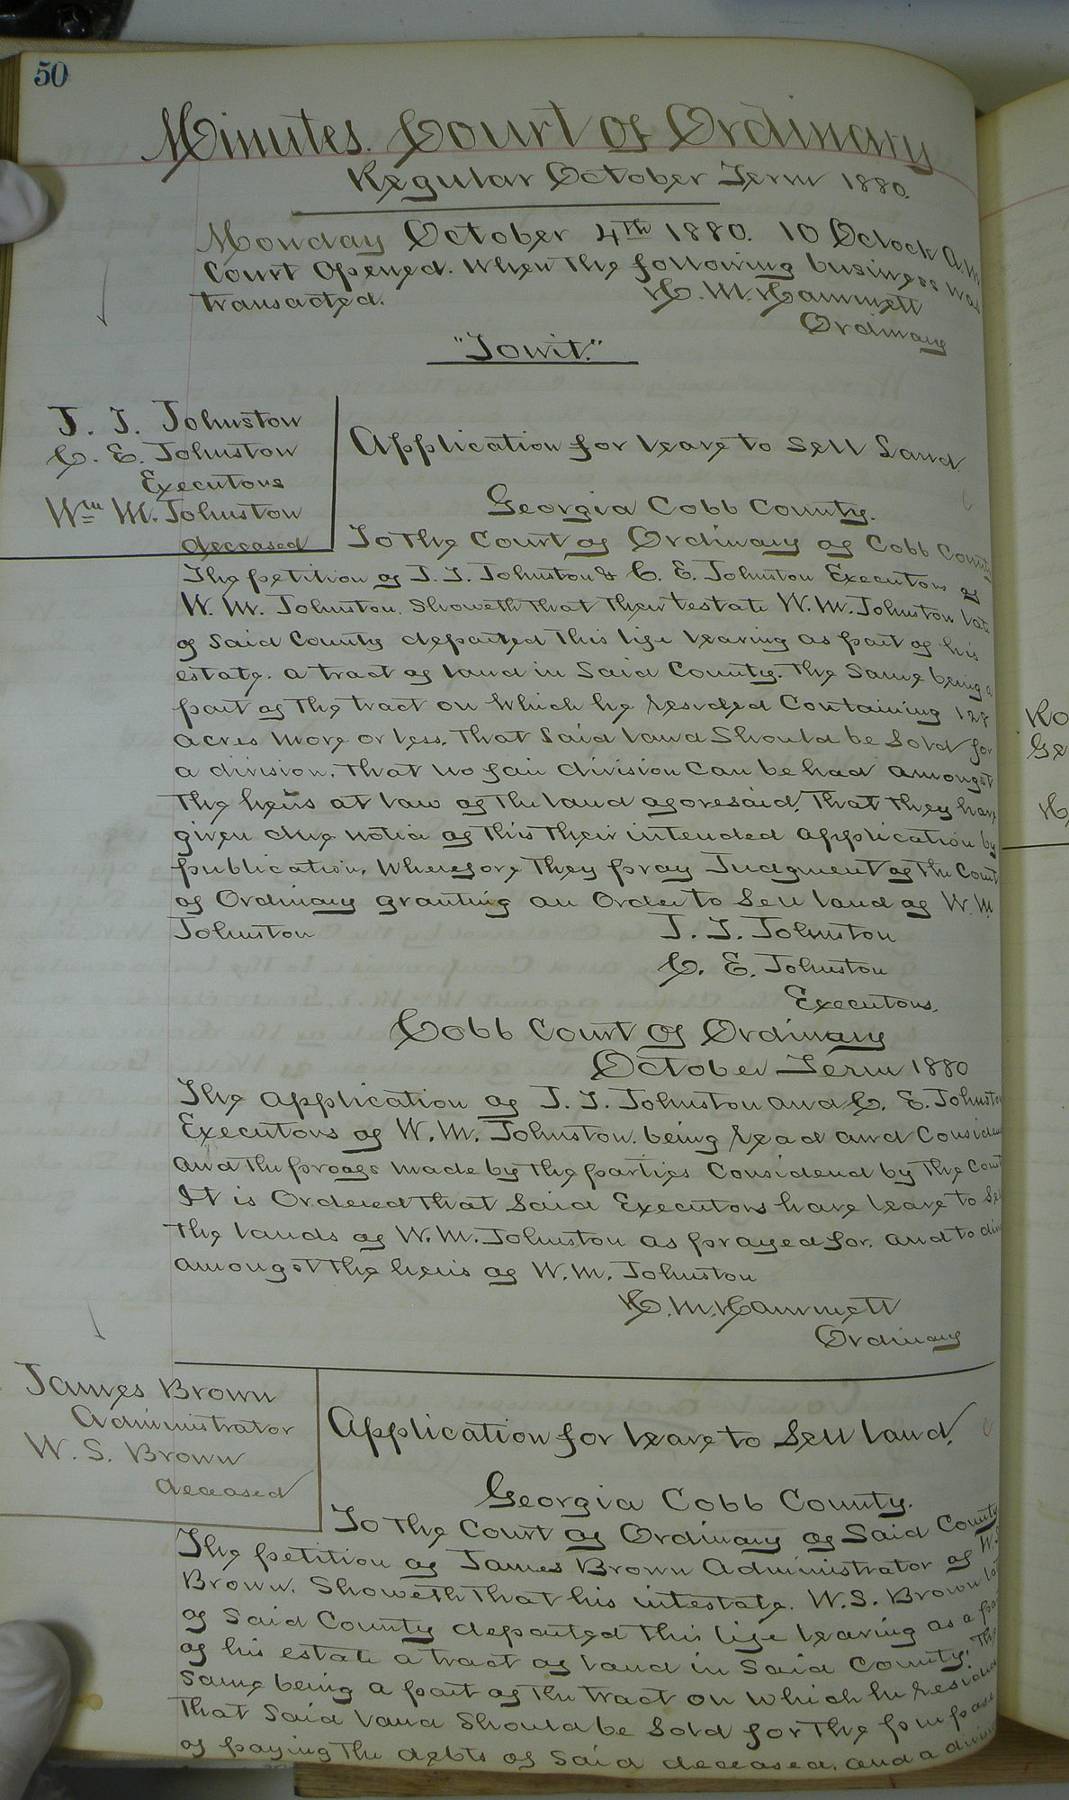 50
Minutes. Court of Ordinary
Regular October Term 1880.
Monday October 4th 1880. 10 Oclock A.M
Court Opened. When the following business was
transacted.
H. M. Hammett
Ordinary
"Towit."
J. J. Johnston
C. E. Johnston
Executors
Wm M. Johnston
deceased
Application for leave to Sell Land
Georgia Cobb County.
To the Court of Ordinary of Cobb County
The petition of J. J. Johnston & C. E. Johnston Executors of
W. M. Johnston. Showeth that their testate W. M. Johnston late
of Said County departed this life leaving as part of his
estate. a tract of land in Said County. the Same being a
part of the tract on which he resided Containing 128
acres more or less. that Said land Should be Sold for
a division. that no fair division can be had amongst
the heirs at law of the land aforesaid. that they have
given due notice of this their intended application by
publication. Wherefore they pray Judgment of the Court
of Ordinary granting an Order to Sell land of W. M.
Johnston
J. J. Johnston
C. E. Johnston
Executors.
Cobb Court of Ordinary
October Term 1880
The application of J. J. Johnston and C. E. Johnston
Executors of W. M. Johnston. being read and Consid
and the proofs made by the parties Considered by the Court
It is Ordered that Said Executors have leave to Se
the lands of W. M. Johnston as prayed for. and to div
amongst the heirs of W. M. Johnston
H. M. Hammett
Ordinary
James Brown
Administrator
W. S. Brown
deceased
Application for leave to Sell land.
Georgia Cobb County.
To the Court of Ordinary of Said County
The petition of James Brown Administrator of W. S.
Brown. Showeth that his intestate. W. S. Brown late
of Said County departed this life leaving as a part
of his estate a tract of land in Said County. The
Same being a part of the tract on which he resided
That Said land Should be Sold for the purpose
of paying the debts of Said deceased. and a division
Ro
Ge
H